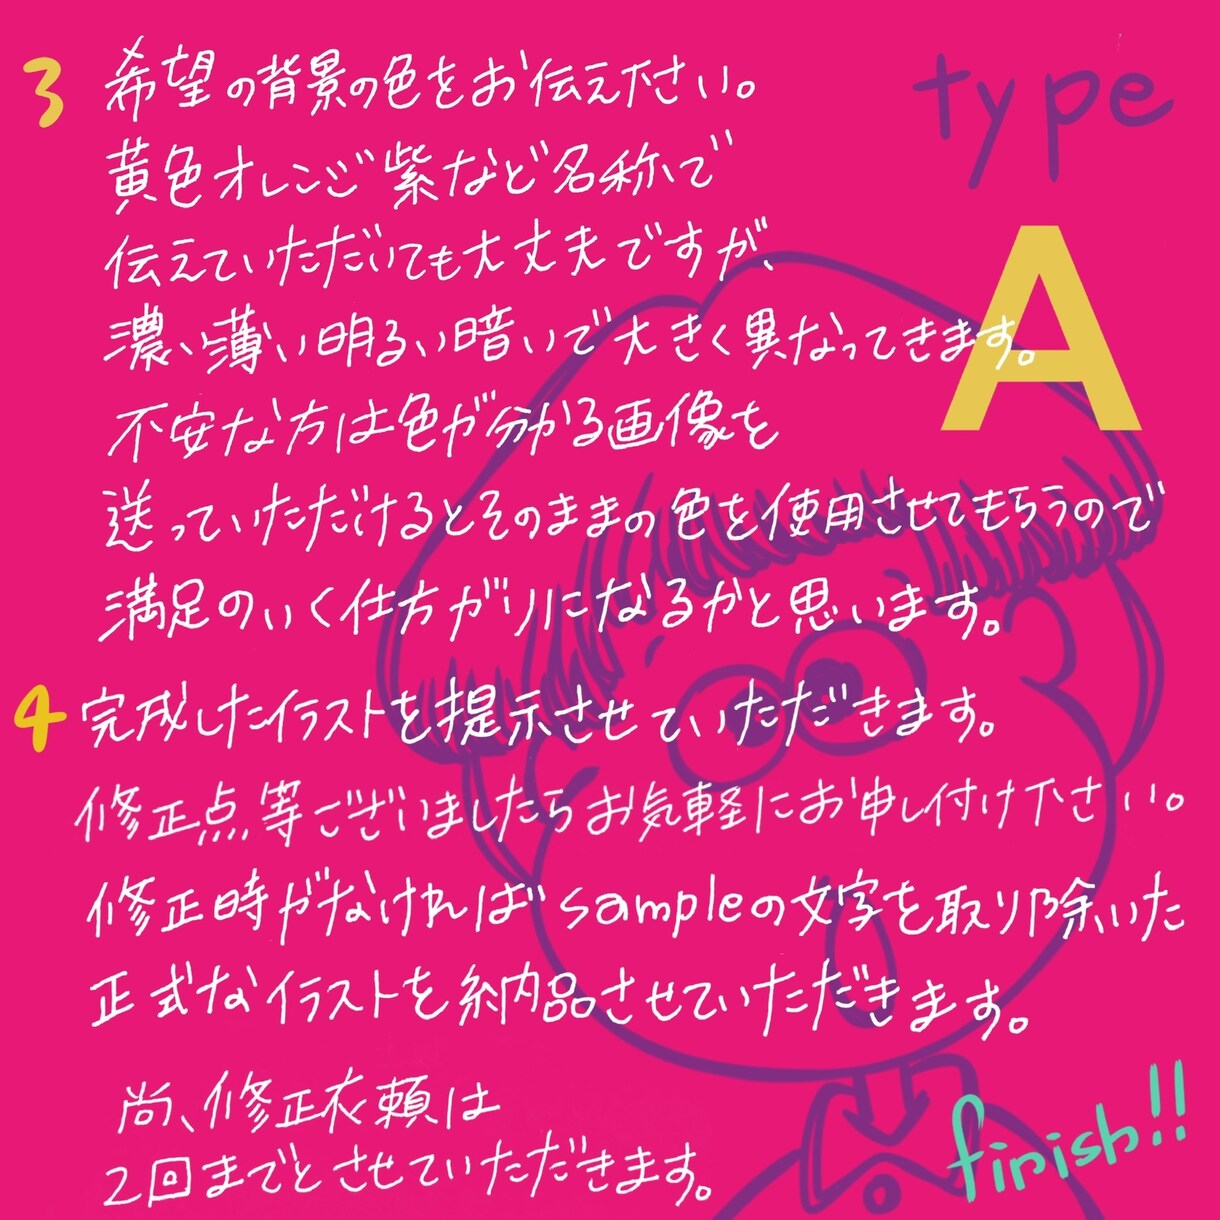 type
A
3 希望の背景の色をお伝え下さい。
黄色オレンジ紫など名称で
伝えていただいても大丈夫ですが、
濃い薄い明るい暗いで大きく異なってきます。
不安な方は色が分かる画像を
送っていただけるとそのままの色を使用させてもらうので
満足のいく仕方がりになるかと思います。
4 完成したイラストを提示させていただきます。
修正点等ございましたらお気軽にお申し付け下さい。
修正時がなければsampleの文字を取り除いた
正式なイラストを納品させていただきます。
尚、修正依頼は
2回までとさせていただきます。
finish!!